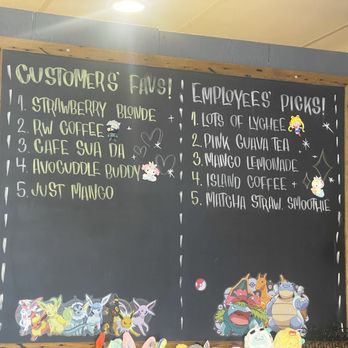 CUSTOMERS' FAVS!
1. STRAWBERRY BLONDE
2. RW COFFEE
3. CAFE SUA DA
4. AVOCUDDLE BUDDY
5. JUST MANGO
EMPLOYEES' PICKS!
1. LOTS OF LYCHEE
2. PINK GUAVA TEA
3. MANGO LEMONADE
4. ISLAND COFFEE
5. MATCHA STRAW. SMOOTHIE